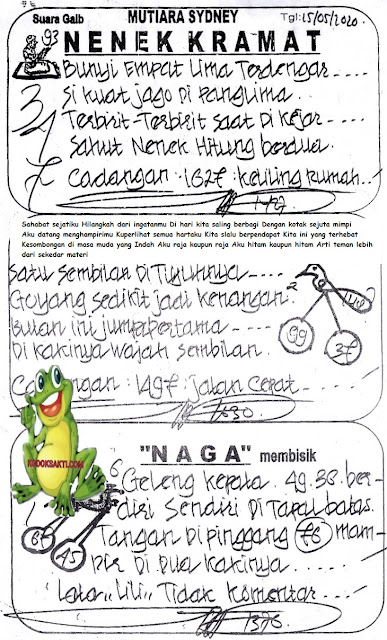 Suara Gaib
MUTIARA SYDNEY
Tgl: 15/05/2020.
93
NENEK KRAMAT
Bunyi Empat Lima Terdengar ....
Si kuat jago Di Panglima.
Terbirit-Terbirit saat Di kejar ....
Sahut Nenek Hitung berdua.
Cadangan : 1627 : keliling rumah..!
Sahabat sejatiku Hilangkah dari ingatanmu Di hari Kita saling berbagi Dengan kotak sejuta mimpi
Aku datang menghampirimu Kuperlihat semua hartaku Kita slalu berpendapat Kita ini yang terhebat
Kesombongan di masa muda yang Indah Aku raja kaupun raja Aku hitam kaupun hitam Arti teman lebih
dari sekedar materi
Satu Sembilan Di Tujuhnya ....
Goyang sedikit jadi kenangan.
Bulan ini jumpa pertama ....
Di kakinya wajah sembilan.
99
37
: 1497 : jalan cepat
1630.
"NAGA" membisik
Geleng kepala. 49.38. ber-
diri Sendiri Di Tapal batas.
Tangan Di pinggang 78 mam-
pir Di Dua kakinya.
Lala,, Lili,, Tidak komentar....
45
1376
KODOKSAKTI.COM